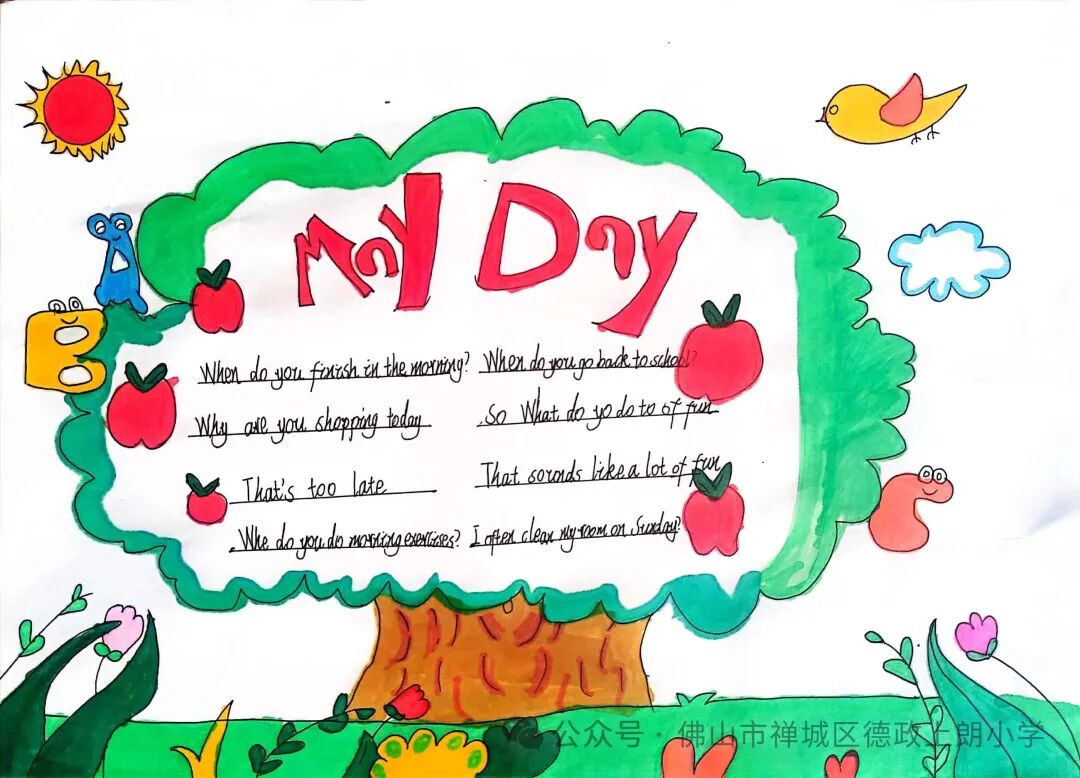 May Day
When do you finish in the morning? When do you go back to school?
Why are you shopping today
.So What do yo do to of fun
That's too late
That sounds like a lot of fun
.Whe do you do morning exercises? I often clean my room on Sunday?
A
B
C
公众号·佛山市禅城区德政上朗小学